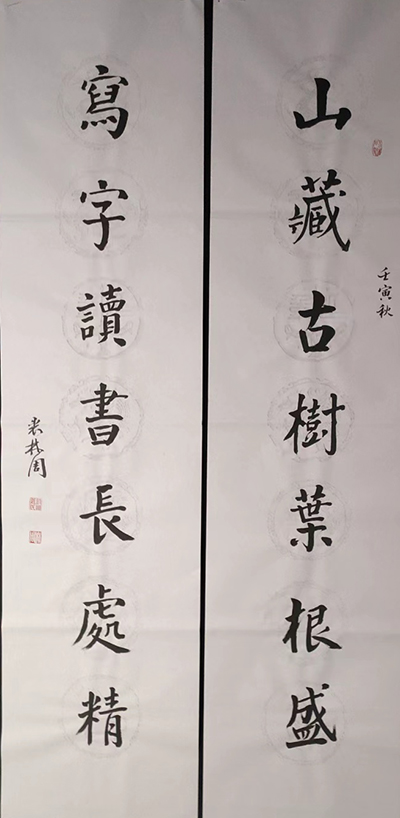 山藏古樹葉根盛
壬寅秋
寫字讀書長處精